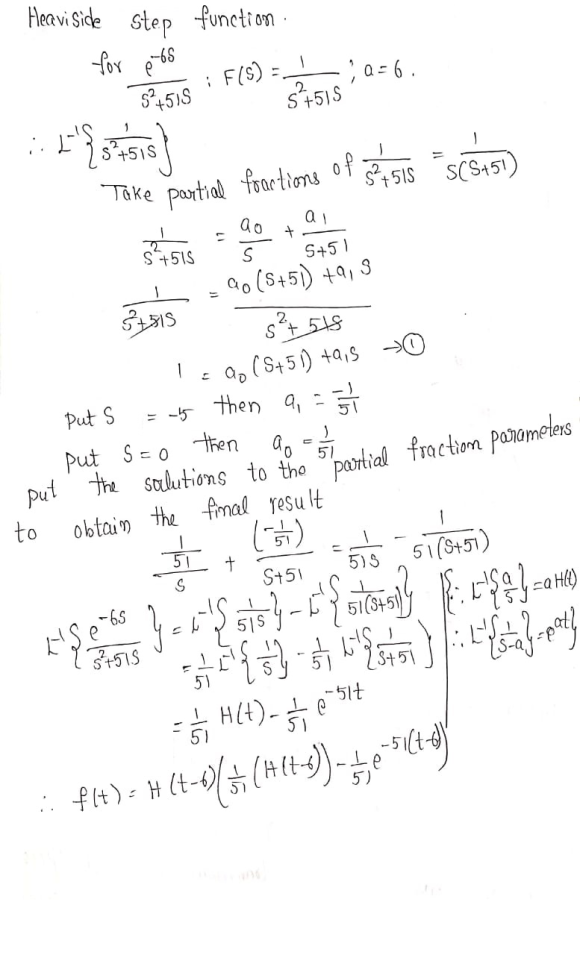 Heaviside step function.
for e^-6S / S²+51S ; F(S) = 1 / S²+51S ; a=6.
∴ L⁻¹{1 / S²+51S}
Take partial fractions of 1 / S²+51S = 1 / S(S+51)
1 / S²+51S = a₀ / S + a₁ / S+51
1 / S²+51S = a₀(S+51) + a₁S / S²+51S
1 = a₀(S+51) + a₁S → ①
Put S = -5 then a₁ = -1/51
Put S = 0 then a₀ = 1/51
put the solutions to the partial fraction parameters
to obtain the final result
1/51 / S + (-1/51) / S+51 = 1 / 51S - 1 / 51(S+51)
L⁻¹{e^-6S / S²+51S} = L⁻¹{1 / 51S} - L⁻¹{1 / 51(S+51)} {∵ L⁻¹{a/S} = aH(t)
= 1/51 L⁻¹{1/S} - 1/51 L⁻¹{1 / S+51} ∴ L⁻¹{1 / S-a} = e^at}
= 1/51 H(t) - 1/51 e^-51t
∴ f(t) = H(t-6)(1/51 (H(t-6)) - 1/51 e^-51(t-6))